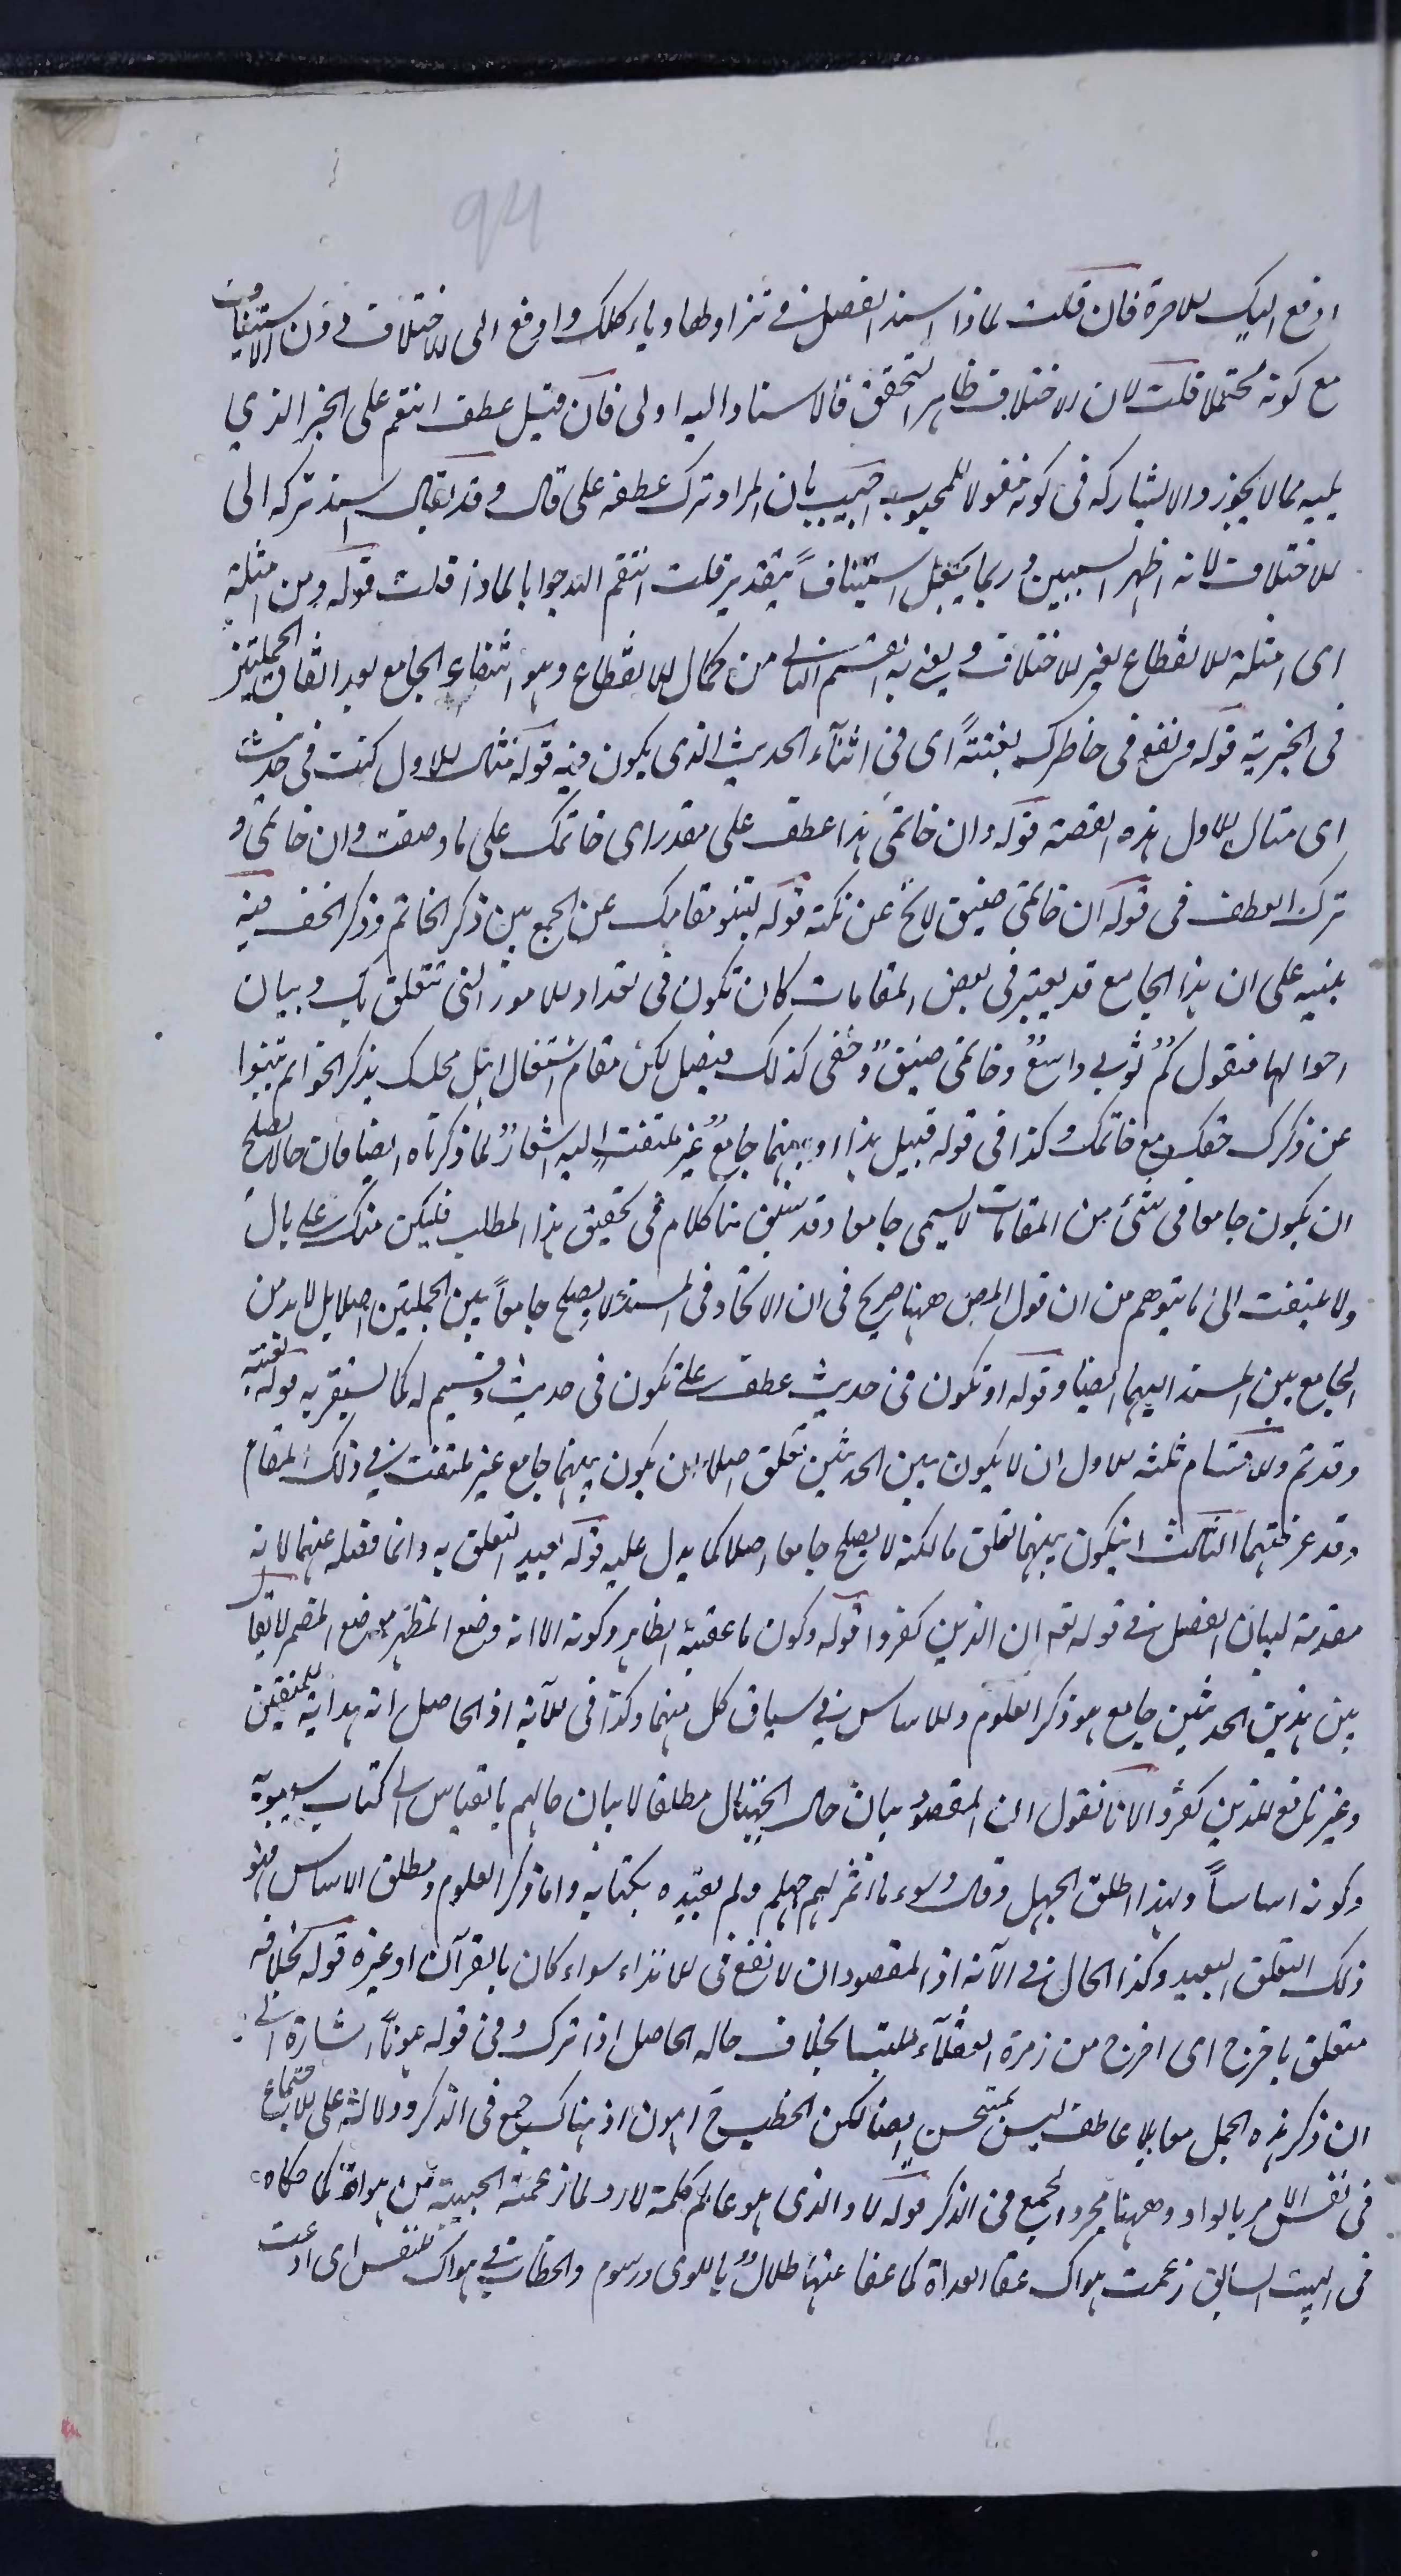 94
ادفع اليك للامرة فان قلت لماذا اسند الفصل في نزاولها وباء كلمك وادفع الى الاختلاف دون الاستيناف
مع كونه محتملا قلت لان الاختلاف ظاهر التحقق فالاسناد اليه اولى فان قيل عطف انتقم على الخبر الذي
يليه مما لا يجوز والا لشاركه في كونه مقولا للمحبوب اجيب بان المراد ترك عطفه على قال وقد يقال اسند تركه الى
الاختلاف لانه اظهر السببين وربما يجعل استينافا بتقدير قلت انتقم الله جوابا لماذا قلت قوله ومن امثلة
اى امثلة الانقطاع بغير الاختلاف ويعني به القسم الثاني من كمال الانقطاع وهو انتفاء الجامع بعد اتفاق الجملتين
في الخبرية قوله ويقع في خاطرك بغتةً اى في اثناء الحديث الذى يكون فيه قوله مثال الاول كنت في حديث
اى مثال الاول هذه القصة قوله وان خاتمى هذا عطف على مقدر اى خاتمك على ما وصفت وان خاتمى و
ترك العطف في قوله ان خاتمى ضيق لا يخ عن نكتة قوله لنبو مقامك عن الجمع بين ذكر الخاتم وذكر الخف فيه
تنبيه على ان هذا الجامع قد يعتبر في بعض المقامات كان تكون في تعداد الامور التي تتعلق بك وبيان
احوالها فنقول كم ثوبي واسعٌ وخاتمى ضيقٌ وخفى كذلك فيصل لكن مقام اشتغال اهل محلك بذكر الخواتم تنبوا
عن ذكرك خفك مع خاتمك وكذا في قوله قبيل هذا او بينهما جامع غير ملتفت اليه اشعارٌ لما ذكرناه ايضا فان ما لا يصلح
ان يكون جامعا في شئ من المقامات لا يسمى جامعا وقد سبق منا كلام في تحقيق هذا المطلب فليكن منك على بال
ولا يلتفت الى ما يتوهم من ان قول المص ههنا صريح في ان الاتحاد في المسند لا يصلح جامعاً بين الجملتين اصلا بل لا بد من
الجامع بين المسند اليهما ايضا وقوله او تكون في حديث عطف على تكون في حديث وقسيم له كما سيقرر به قوله بغتة
وقد تم والاقسام ثلثه الاول ان لا يكون بين الحديثين تعلق اصلا ان يكون بينهما جامع غير ملتفت في ذلك المقام
وقد عرفتهما الثالث ان يكون بينهما تعلق ما لكنه لا يصلح جامعا اصلا كما يدل عليه قوله بعيد التعلق به وانما فصله عنهما لانه
مقدمة لبيان الفصل في قوله تعه ان الذين كفروا قوله وكون ما عقبه الظاهر وكونه الا انه وضع المظهر موضع المضمر لا يقال
بين هذين الحديثين جامع هو ذكر العلوم والاساس في سياق كل منهما وكذا في الآية اذ الحاصل انه هداية للمتقين
وغير نافع للذين كفروا لانا نقول ان المقصود بيان حال الجهال مطلقا لا بيان حالهم بالقياس الى كتاب سيبويه
وكونه اساساً ولهذا اطلق الجهل وقال وسوء ما اثمر لهم جهلهم ولم يقيده بكتابه واما ذكر العلوم ومطلق الاساس فهو
ذلك التعلق البعيد وكذا الحال في الآية اذ المقصود ان لا نفع في الانذار سواء كان بالقرآن او غيره قوله بخلافه
متعلق باخرج اى اخرج من زمرة العقلاء ملتبسا بخلاف حاله الحاصل اذا ترك وفي قوله اشارة الى
ان ذكر هذه الجمل معا بلا عاطف ليس بمستحسن ايضا لكن الخطب ح اهون اذ هناك جمع في الذكر ودلالة على الاجتماع
في نفس الامر بالواو وههنا مجرد الجمع في الذكر قوله لا والذى هو عالم كلمة لا رد لما زعمته الحبيبة من هواه كما حكاه
في البيت السابق زعمت هواك عفا الغداة كما عفا عنها طلالٌ باللوى ورسوم والخطاب في هواك للنفس اى ادعت